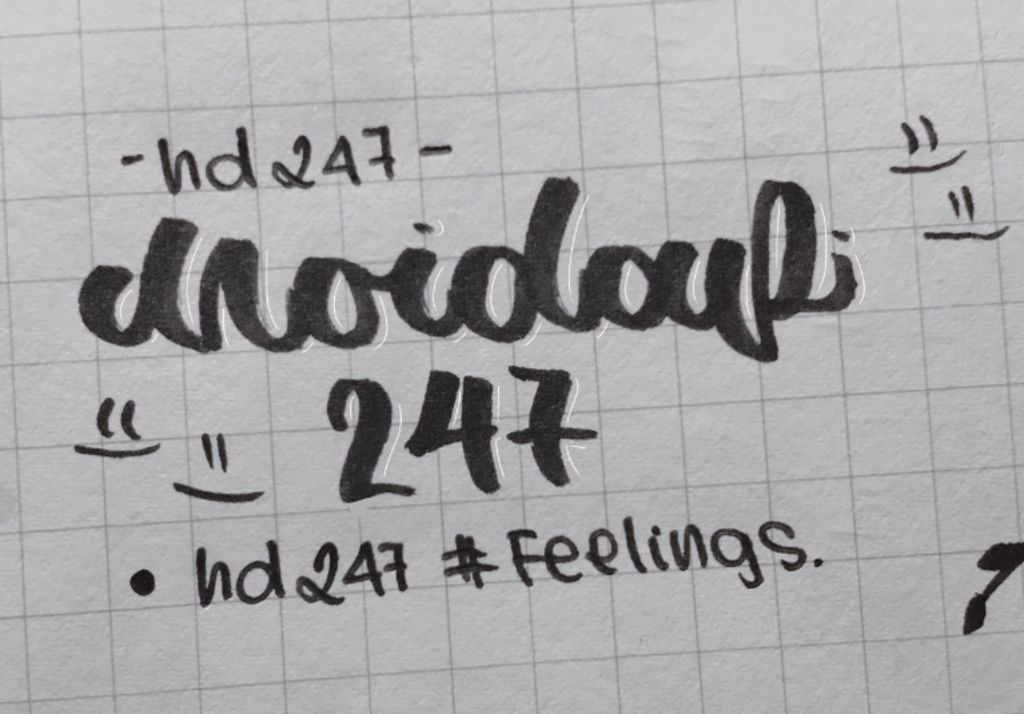 -hd247-
247
• hd247 #Feelings.